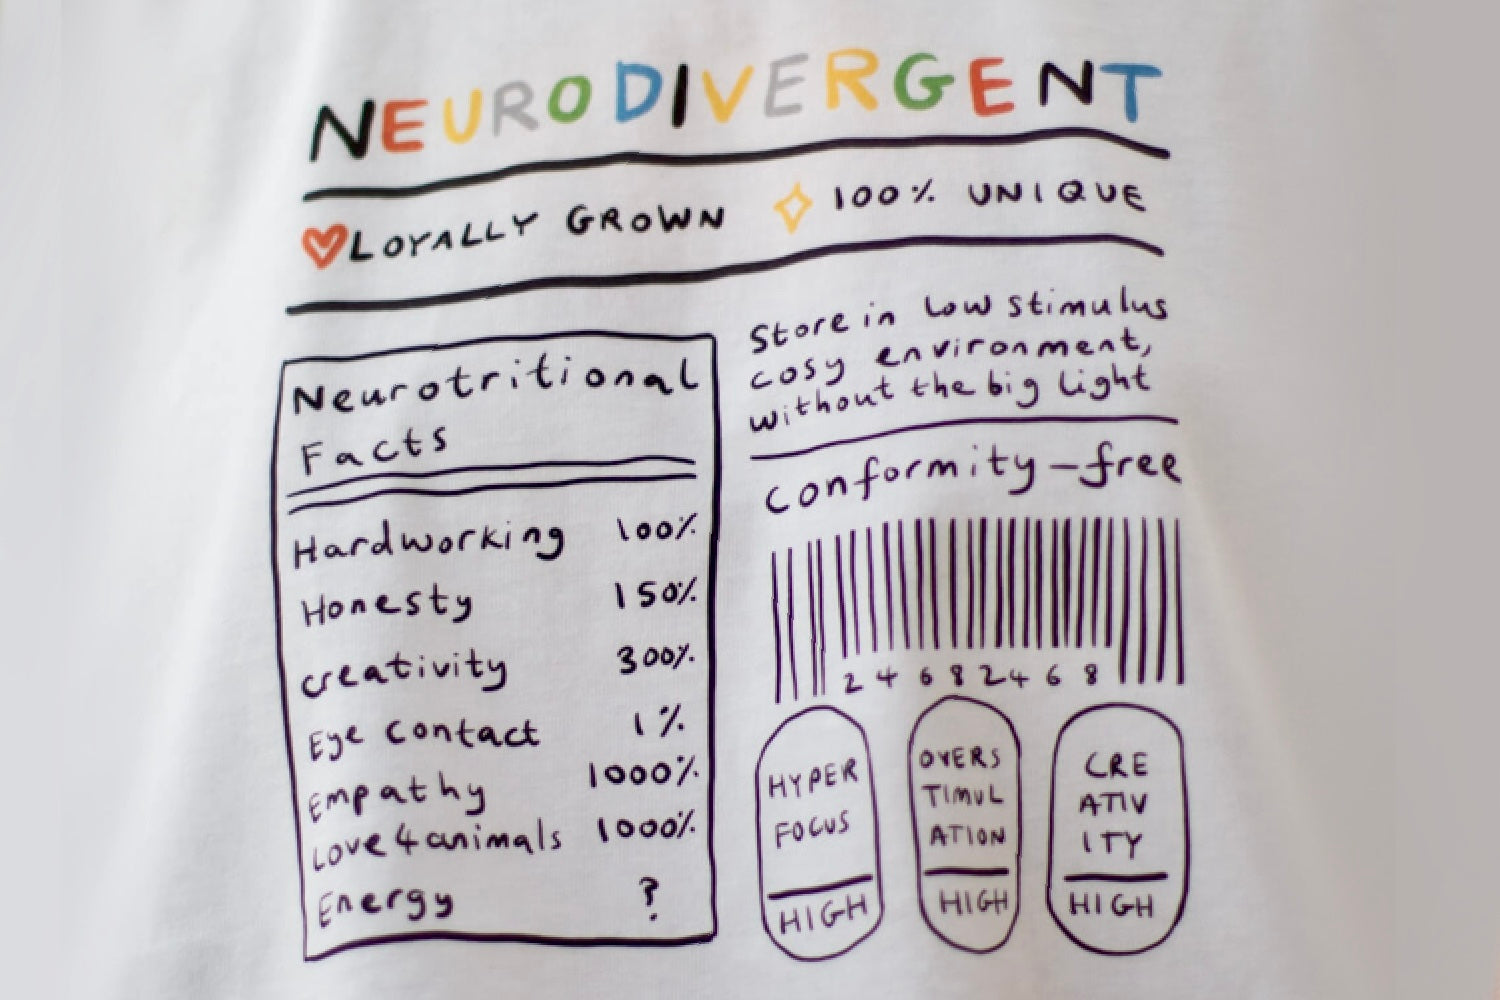 NEURODIVERGENT
LOYALLY GROWN
100% UNIQUE
Neurotritional
Facts
Hardworking 100%
Honesty 150%
creativity 300%
Eye contact 1%
Empathy 1000%
Love 4 animals 1000%
Energy ?
Store in low stimulus
cosy environment,
without the big light
conformity-free
2 4 6 8 2 4 6 8
HYPER
FOCUS
HIGH
OVERS
TIMUL
ATION
HIGH
CRE
ATIV
ITY
HIGH